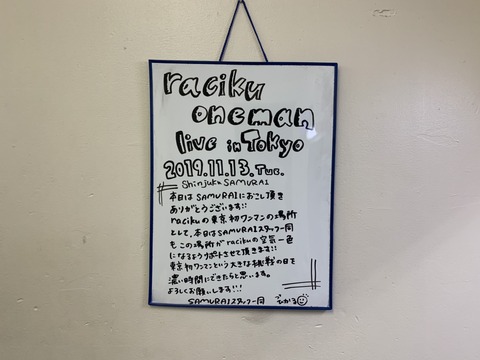 raciku
oneman
live in Tokyo
2019.11.13.Tue.
Shinjuku SAMURAI
本日はSAMURAIにおこし頂き
ありがとうございます!!
racikuの東京初ワンマンの場所
として、本日はSAMURAIスタッフ一同
もこの場所がracikuの空気一色
になるようサポートさせて頂きます!!
東京初ワンマンという大きな挑戦の日を
濃い時間にできたらと思います。
よろしくお願いします!!!
SAMURAIスタッフ一同